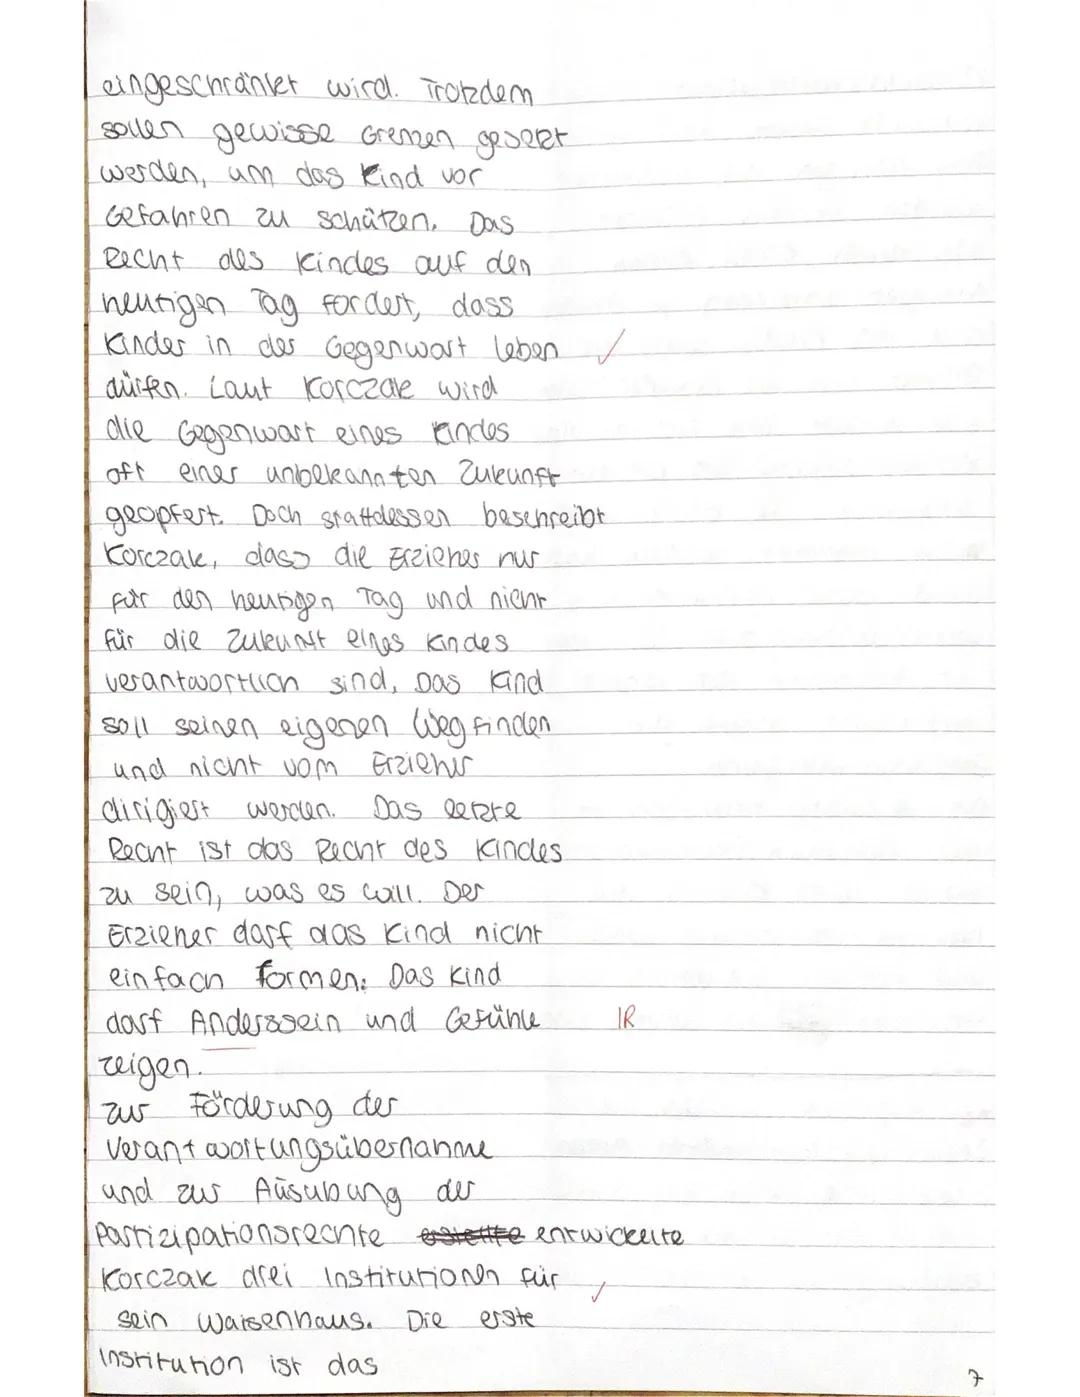 eingeschränkt wird. Trotzdem
sollen gewisse Grenzen gesetzt
werden, um das Kind vor
Gefahren zu schützen. Das
Recht des Kindes auf den
heutigen Tag fordert, dass
Kinder in der Gegenwart leben ✓
dürfen. Laut Korczak wird
die Gegenwart eines Kindes
oft einer unbekannten Zukunft
geopfert. Doch stattdessen beschreibt
Korczak, dass die Erzieher nur
für den heutigen Tag und nicht
für die Zukunft eines Kindes
verantwortlich sind. Das Kind
soll seinen eigenen Weg finden
und nicht vom Erzieher
dirigiert werden. Das letzte
Recht ist das Recht des Kindes
zu sein, was es will. Der
Erzieher darf das Kind nicht
einfach formen. Das Kind
darf Anderssein und Gefühle IR
zeigen.
Zur Förderung der
Verantwortungsübernahme
und zur Ausübung der
Partizipationsrechte erstellte entwickelte
Korczak drei Institutionen für ✓
sein Waisenhaus. Die erste
Institution ist das
7